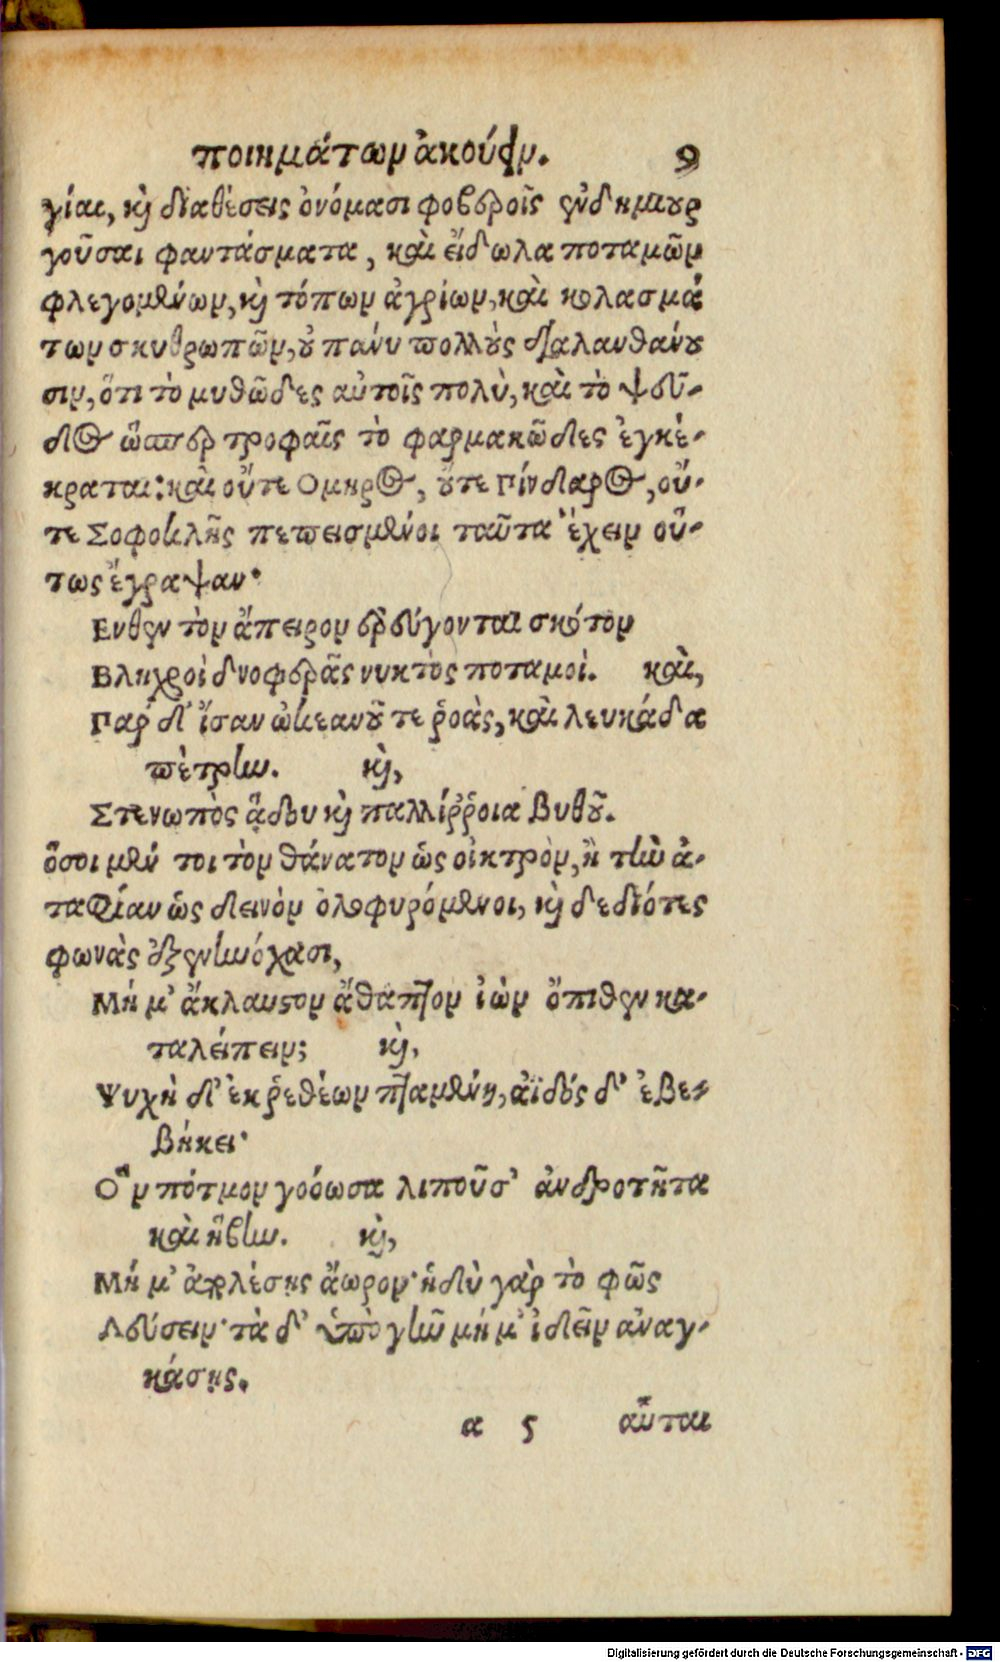 ποιημάτων ἀκούειν. 9
γίαι, καὶ διαθέσεις ὀνόμασι φοβεροῖς ἐνδημιουρ
γοῦσαι φαντάσματα, καὶ εἴδωλα ποταμῶν
φλεγομένων, καὶ τόπων ἀγρίων, καὶ κολασμά
των σκυθρωπῶν, οὐ πάνυ πολλοὺς διαλανθάνου
σιν, ὅτι τὸ μυθῶδες αὐτοῖς πολὺ, καὶ τὸ ψεῦ-
δος ὥσπερ τροφαῖς τὸ φαρμακῶδες ἐγκέ-
κραται: καὶ οὔτε Ομηρος, οὔτε Πίνδαρος, οὔ-
τε Σοφοκλῆς πεπεισμένοι ταῦτα ἔχειν οὕ-
τως ἔγραψαν·
Ενθεν τὸν ἄπειρον ἐρεύγονται σκότον
Βληχροὶ δνοφερᾶς νυκτὸς ποταμοί. καὶ,
Παρ' δ' ἴσαν ὠκεανοῦ τε ῥοὰς, καὶ λευκάδα
πέτρην. καὶ,
Στενωπὸς ᾅδου καὶ παλλίῤῥοια βυθοῦ.
ὅσοι μέν τοι τὸν θάνατον ὡς οἰκτρὸν, ἢ τὴν ἀ-
ταφίαν ὡς δεινὸν ὀλοφυρόμενοι, καὶ δεδιότες
φωνὰς ἐξενηνόχασι,
Μή μ' ἄκλαυστον ἄθαπτον ἰὼν ὄπιθεν κα-
ταλείπειν; καὶ,
Ψυχὴ δ' ἐκ ῥεθέων πταμένη, ἄϊδός δ' ἐβε-
βήκει·
Ὃν πότμον γοόωσα λιποῦσ' ἀνδροτῆτα
καὶ ἥβην. καὶ,
Μή μ' ἀπολέσῃς ἄωρον· ἡδὺ γὰρ τὸ φῶς
Λεύσειν· τὰ δ' ὑπὸ γῆν μή μ' ἰδεῖν ἀναγ-
κάσῃς.
α 5 αὗται
Digitalisierung gefördert durch die Deutsche Forschungsgemeinschaft - DFG